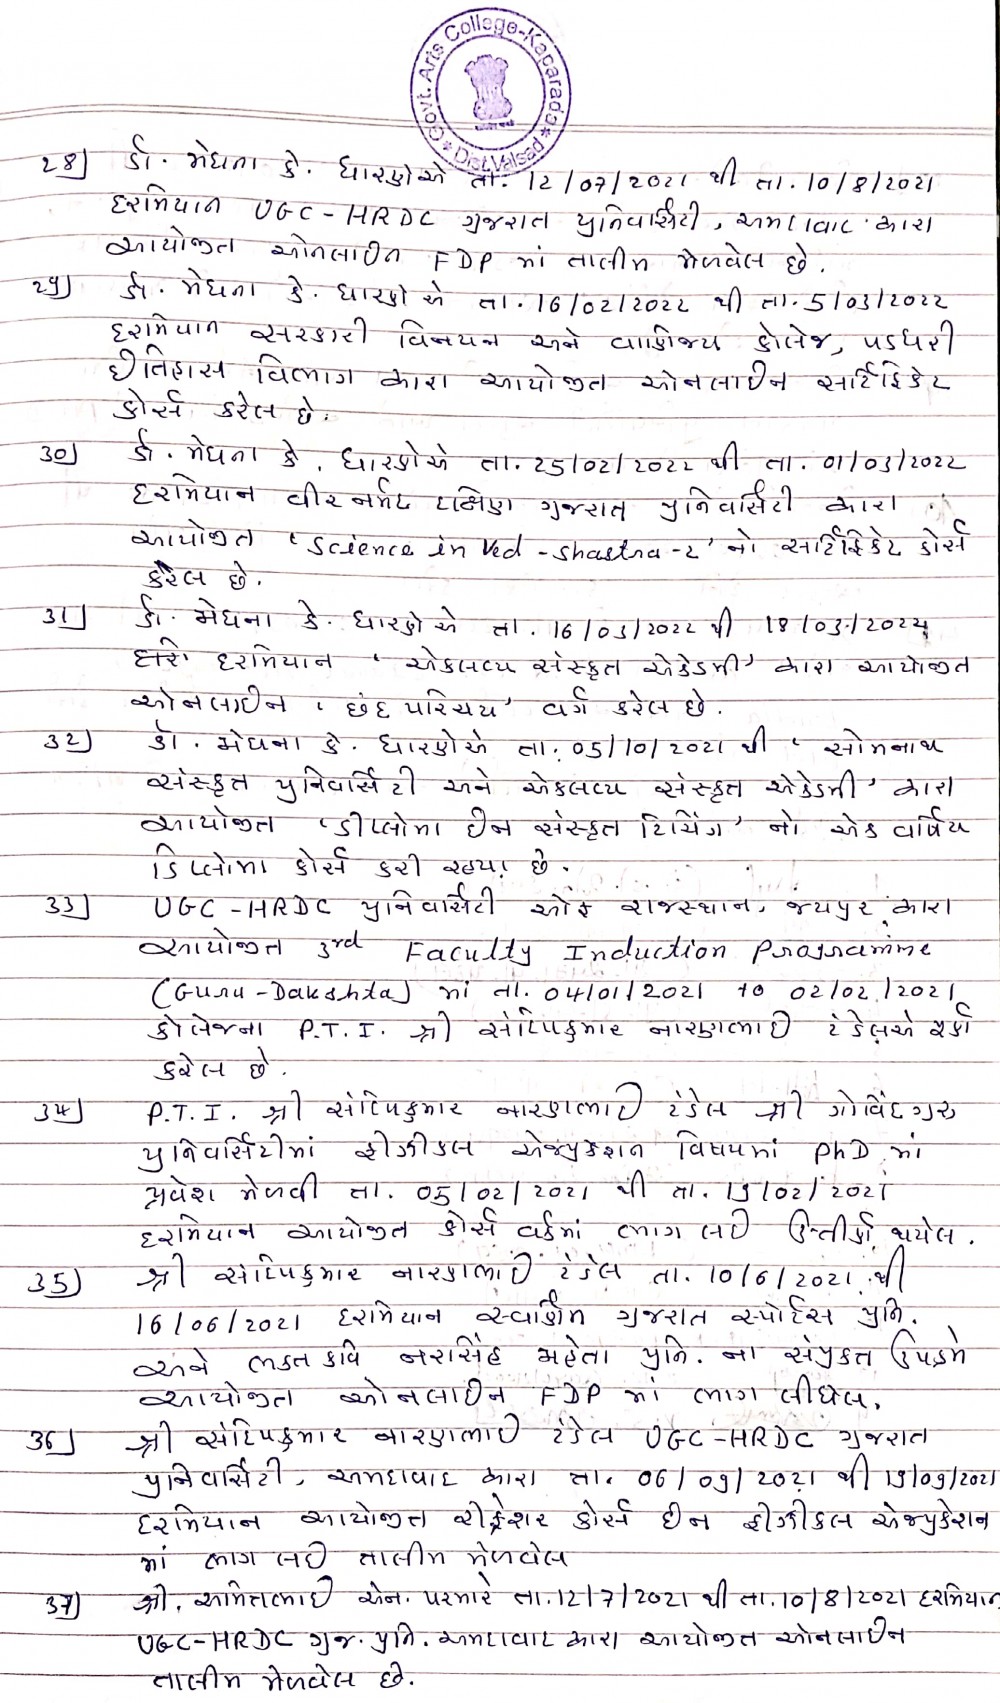 Govt. Arts College-Kaparada
Dist.Valsad
28) ડૉ. મેઘના કે. ધારણેએ તા. 12/07/2021 થી તા. 10/8/2021
દરમિયાન UGC-HRDC ગુજરાત યુનિવર્સિટી, અમદાવાદ દ્વારા
આયોજીત ઓનલાઈન FDP માં તાલીમ મેળવેલ છે.
29) ડૉ. મેઘના કે. ધારણેએ તા. 16/02/2022 થી તા. 5/03/2022
દરમિયાન સરકારી વિનયન અને વાણિજ્ય કોલેજ, પડધરી
ઈતિહાસ વિભાગ દ્વારા આયોજીત ઓનલાઈન સર્ટિફિકેટ
કોર્સ કરેલ છે.
30) ડૉ. મેઘના કે. ધારણેએ તા. 25/02/2022 થી તા. 01/03/2022
દરમિયાન વીર નર્મદ દક્ષિણ ગુજરાત યુનિવર્સિટી દ્વારા
આયોજીત 'Science in Ved-Shastra-2' નો સર્ટિફિકેટ કોર્સ
કરેલ છે.
31) ડૉ. મેઘના કે. ધારણેએ તા. 16/03/2022 થી 18/03/2022
દરમિયાન 'એકલવ્ય સંસ્કૃત એકેડમી' દ્વારા આયોજીત
ઓનલાઈન 'છંદ પરિચય' વર્ગ કરેલ છે.
32) ડૉ. મેઘના કે. ધારણેએ તા. 05/10/2021 થી 'સોમનાથ
સંસ્કૃત યુનિવર્સિટી અને એકલવ્ય સંસ્કૃત એકેડમી' દ્વારા
આયોજીત 'ડીપ્લોમા ઈન સંસ્કૃત ટિચિંગ' નો એક વર્ષિય
ડિપ્લોમા કોર્સ કરી રહયા છે.
33) UGC-HRDC યુનિવર્સિટી ઓફ રાજસ્થાન, જયપુર દ્વારા
આયોજીત 3rd Faculty Induction Programme
(Guru-Dakshta) માં તા. 04/01/2021 to 02/02/2021
કોલેજના P.T.I. શ્રી સંદિપકુમાર નારણભાઈ ટંડેલએ પૂર્ણ
કરેલ છે.
34) P.T.I. શ્રી સંદિપકુમાર નારણભાઈ ટંડેલ શ્રી ગોવિંદગુરુ
યુનિવર્સિટીમાં ફીઝીકલ એજ્યુકેશન વિષયમાં PhD માં
પ્રવેશ મેળવી તા. 05/02/2021 થી તા. 15/02/2021
દરમિયાન આયોજીત કોર્સ વર્કમાં ભાગ લઈ ઉત્તીર્ણ થયેલ.
35) શ્રી સંદિપકુમાર નારણભાઈ ટંડેલ તા. 10/6/2021 થી
16/06/2021 દરમિયાન સ્વર્ણિમ ગુજરાત સ્પોર્ટસ યુનિ.
અને ભકત કવિ નરસિંહ મહેતા યુનિ. ના સંયુકત ઉપક્રમે
આયોજીત ઓનલાઈન FDP માં ભાગ લીધેલ.
36) શ્રી સંદિપકુમાર નારણભાઈ ટંડેલ UGC-HRDC ગુજરાત
યુનિવર્સિટી, અમદાવાદ દ્વારા તા. 06/09/2021 થી 19/09/2021
દરમિયાન આયોજીત રીફ્રેશર કોર્સ ઈન ફીઝીકલ એજ્યુકેશન
માં ભાગ લઈ તાલીમ મેળવેલ
37) શ્રી. અમિતભાઈ એન. પરમારે તા. 12/7/2021 થી તા. 10/8/2021 દરમિયાન
UGC-HRDC ગુજ. યુનિ. અમદાવાદ દ્વારા આયોજીત ઓનલાઈન
તાલીમ મેળવેલ છે.